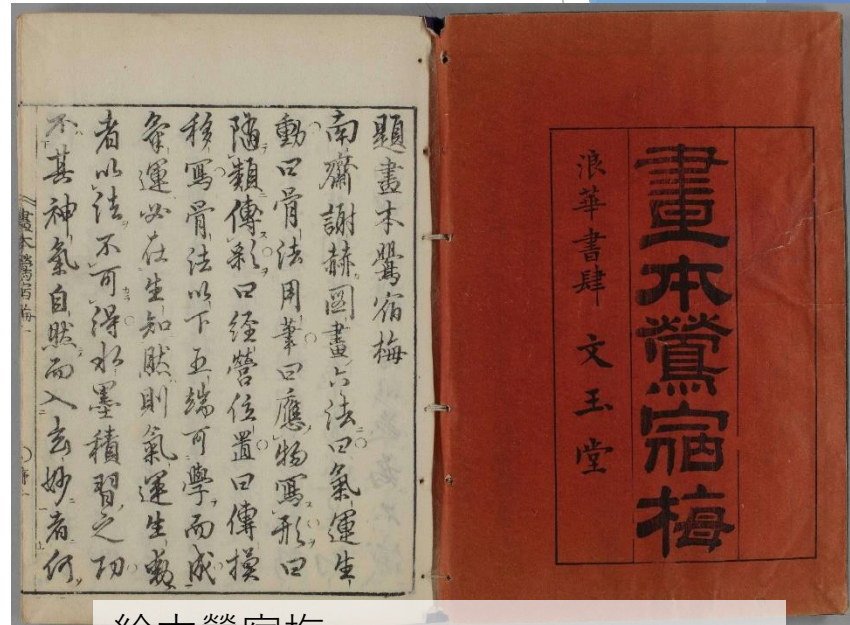 畫本鶯宿梅
浪華書肆 文玉堂
題畫本鶯宿梅
南齋謝赫圖畫六法曰氣運生
動曰骨法用筆曰應物寫形曰
隨類傳彩曰經營位置曰傳摸
移寫骨法以下五端可學而成
氣運必在生知然則氣運生動
者以法不可得水墨積習之功
不其神氣自然而入玄妙者何
畫本鶯宿梅一